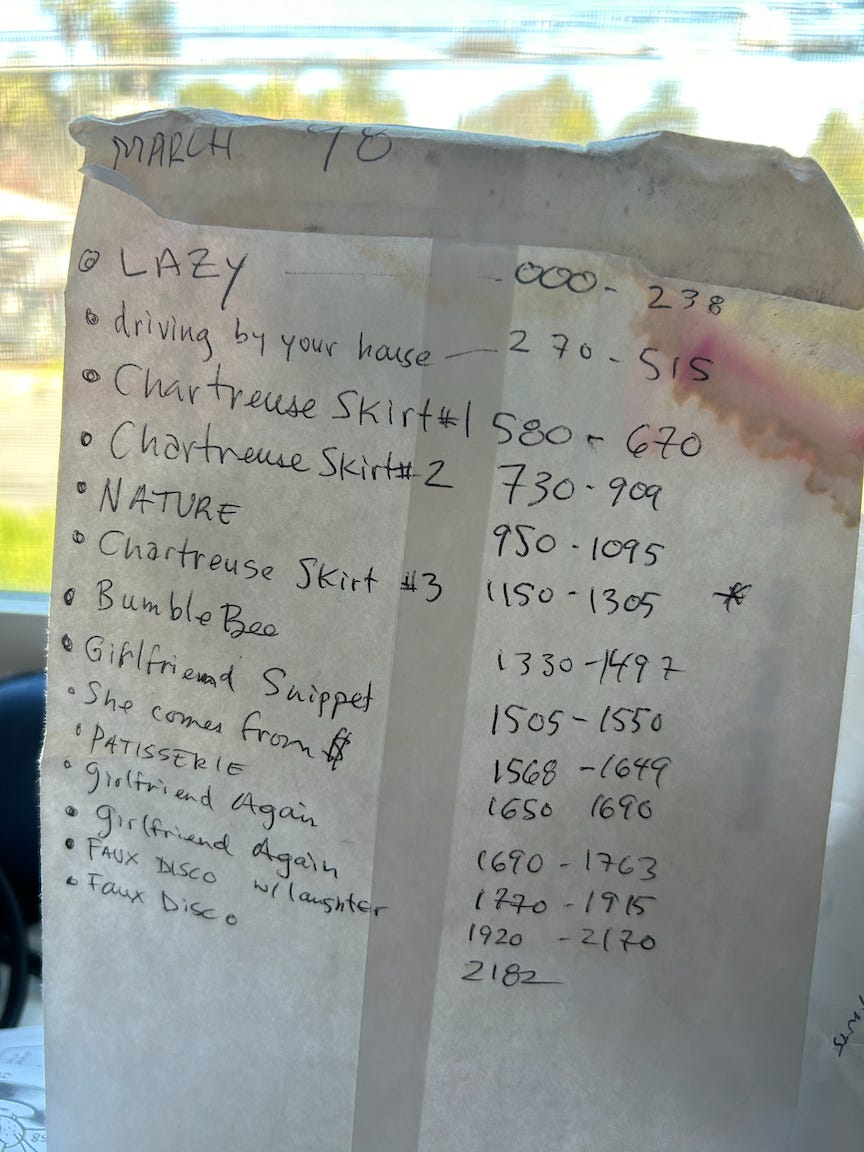 MARCH 98
LAZY 000 - 238
driving by your house — 270 - 515
Chartreuse Skirt #1 580 - 670
Chartreuse Skirt #2 730 - 909
NATURE 950 - 1095
Chartreuse Skirt #3 1150 - 1305 *
Bumble Bee 1330 - 1497
Girlfriend Snippet 1505 - 1550
She comes from $ 1568 - 1649
PATISSERIE 1650 1690
girlfriend Again 1690 - 1763
girlfriend Again 1770 - 1915
FAUX DISCO w/ laughter 1920 - 2170
Faux Disco 2182